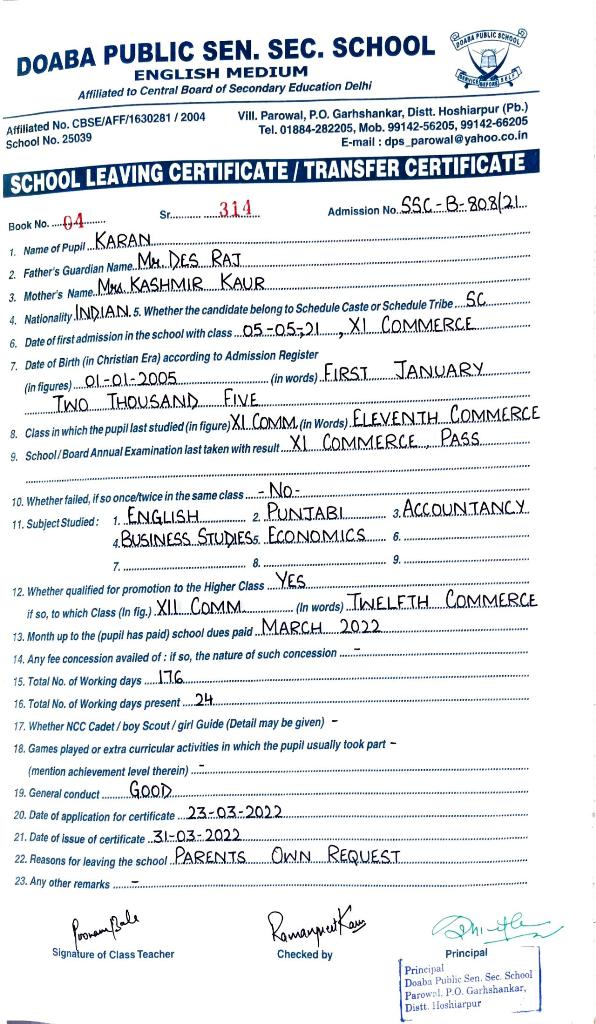 DOABA PUBLIC SEN. SEC. SCHOOL
ENGLISH MEDIUM
Affiliated to Central Board of Secondary Education Delhi
DOABA PUBLIC SCHOOL
SERVICE BEFORE SELF
Affiliated No. CBSE/AFF/1630281 / 2004
School No. 25039
Vill. Parowal, P.O. Garhshankar, Distt. Hoshiarpur (Pb.)
Tel. 01884-282205, Mob. 99142-56205, 99142-66205
E-mail : dps_parowal@yahoo.co.in
SCHOOL LEAVING CERTIFICATE / TRANSFER CERTIFICATE
Book No. 04 Sr. 314 Admission No. SSC-B-808/21
1. Name of Pupil KARAN
2. Father's Guardian Name Mr. DES RAJ
3. Mother's Name Mrs KASHMIR KAUR
4. Nationality INDIAN 5. Whether the candidate belong to Schedule Caste or Schedule Tribe SC
6. Date of first admission in the school with class 05-05-21, XI COMMERCE
7. Date of Birth (in Christian Era) according to Admission Register
(in figures) 01-01-2005 (in words) FIRST JANUARY
TWO THOUSAND FIVE
8. Class in which the pupil last studied (in figure) XI COMM (in Words) ELEVENTH COMMERCE
9. School / Board Annual Examination last taken with result XI COMMERCE, PASS
10. Whether failed, if so once/twice in the same class -NO-
11. Subject Studied : 1. ENGLISH 2. PUNJABI 3. ACCOUNTANCY
4. BUSINESS STUDIES 5. ECONOMICS 6.
7. 8. 9.
12. Whether qualified for promotion to the Higher Class YES
if so, to which Class (In fig.) XII COMM (In words) TWELFTH COMMERCE
13. Month up to the (pupil has paid) school dues paid MARCH 2022
14. Any fee concession availed of : if so, the nature of such concession -
15. Total No. of Working days 176
16. Total No. of Working days present 24
17. Whether NCC Cadet / boy Scout / girl Guide (Detail may be given) -
18. Games played or extra curricular activities in which the pupil usually took part -
(mention achievement level therein) -
19. General conduct GOOD
20. Date of application for certificate 23-03-2022
21. Date of issue of certificate 31-03-2022
22. Reasons for leaving the school PARENTS OWN REQUEST
23. Any other remarks -
Poonam Bala Ramanpreet Kaur
Signature of Class Teacher Checked by Principal
Principal
Doaba Public Sen. Sec. School
Parowal, P.O. Garhshankar,
Distt. Hoshiarpur